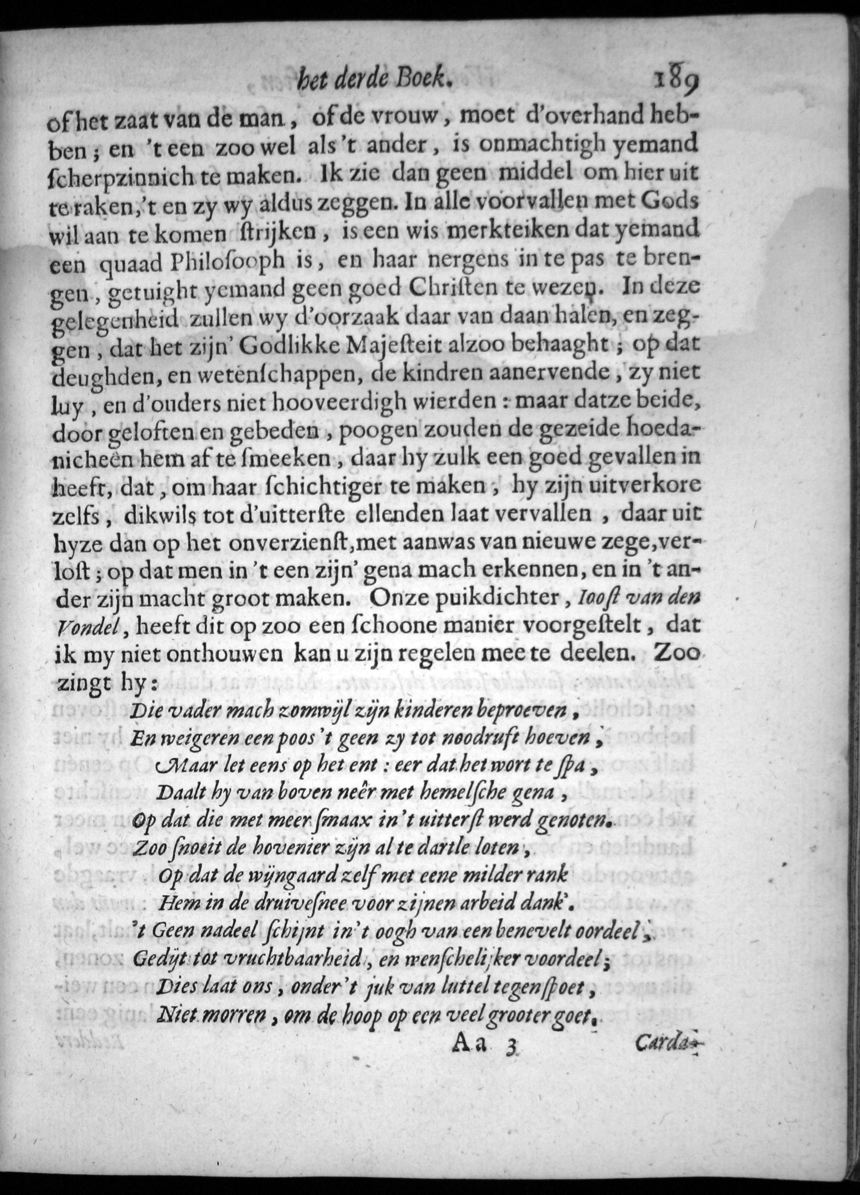 het derde Boek. 189
of het zaat van de man, of de vrouw, moet d'overhand heb-
ben; en 't een zoo wel als 't ander, is onmachtigh yemand
ſcherpzinnich te maken. Ik zie dan geen middel om hier uit
te raken, 't en zy wy aldus zeggen. In alle voorvallen met Gods
wil aan te komen ſtrijken, is een wis merkteiken dat yemand
een quaad Philoſooph is, en haar nergens in te pas te bren-
gen, getuight yemand geen goed Chriſten te wezen. In deze
gelegenheid zullen wy d'oorzaak daar van daan halen, en zeg-
gen, dat het zijn' Godlikke Majeſteit alzoo behaaght; op dat
deughden, en wetenſchappen, de kindren aanervende, zy niet
luy, en d'ouders niet hooveerdigh wierden: maar datze beide,
door geloften en gebeden, poogen zouden de gezeide hoeda-
nicheên hem af te ſmeeken, daar hy zulk een goed gevallen in
heeft, dat, om haar ſchichtiger te maken, hy zijn uitverkore
zelfs, dikwils tot d'uitterſte ellenden laat vervallen, daar uit
hyze dan op het onverzienſt, met aanwas van nieuwe zege, ver-
loſt; op dat men in 't een zijn' gena mach erkennen, en in 't an-
der zijn macht groot maken. Onze puikdichter, Iooſt van den
Vondel, heeft dit op zoo een ſchoone manier voorgeſtelt, dat
ik my niet onthouwen kan u zijn regelen mee te deelen. Zoo
zingt hy:
Die vader mach zomwijl zijn kinderen beproeven,
En weigeren een poos 't geen zy tot noodruft hoeven,
Maar let eens op het ent: eer dat het wort te ſpa,
Daalt hy van boven neêr met hemelſche gena,
Op dat die met meer ſmaax in 't uitterſt werd genoten.
Zoo ſnoeit de hovenier zijn al te dartle loten,
Op dat de wijngaard zelf met eene milder rank
Hem in de druiveſnee voor zijnen arbeid dank'.
't Geen nadeel ſchijnt in 't oogh van een benevelt oordeel,
Gedijt tot vruchtbaarheid, en wenſchelijker voordeel;
Dies laat ons, onder 't juk van luttel tegenſpoet,
Niet morren, om de hoop op een veel grooter goet.
Aa 3 Carda-